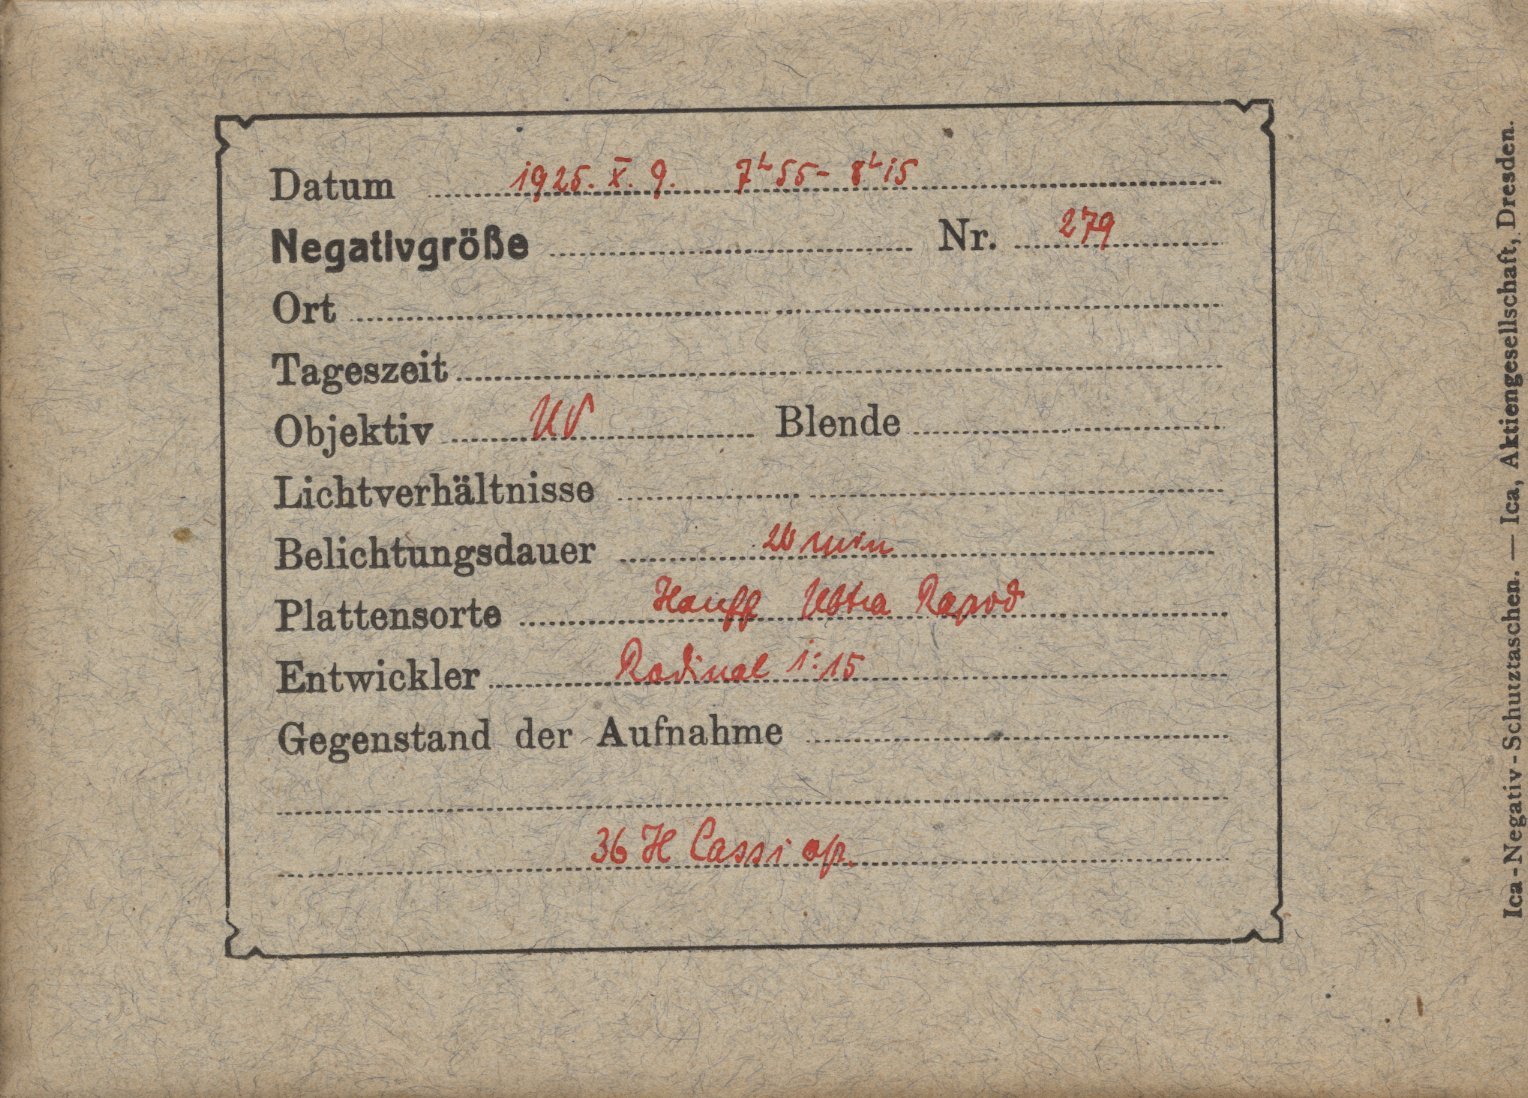 Datum 1925. X. 9. 7h 55 - 8h 15
Negativgröße Nr. 279
Ort
Tageszeit
Objektiv UV Blende
Lichtverhältnisse
Belichtungsdauer 20 min
Plattensorte Hauff Ultra Rapid
Entwickler Rodinal 1:15
Gegenstand der Aufnahme
36 H Cassiop.
Ica-Negativ-Schutztaschen. — Ica, Aktiengesellschaft, Dresden.